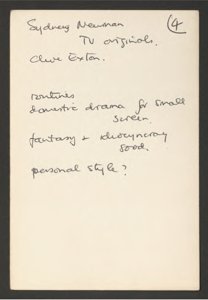 Sydney Newman ④
TV originals.
Clive Exton.
routines
domestic drama for small
screen.
fantasy + idiocyncracy
good.
personal style?